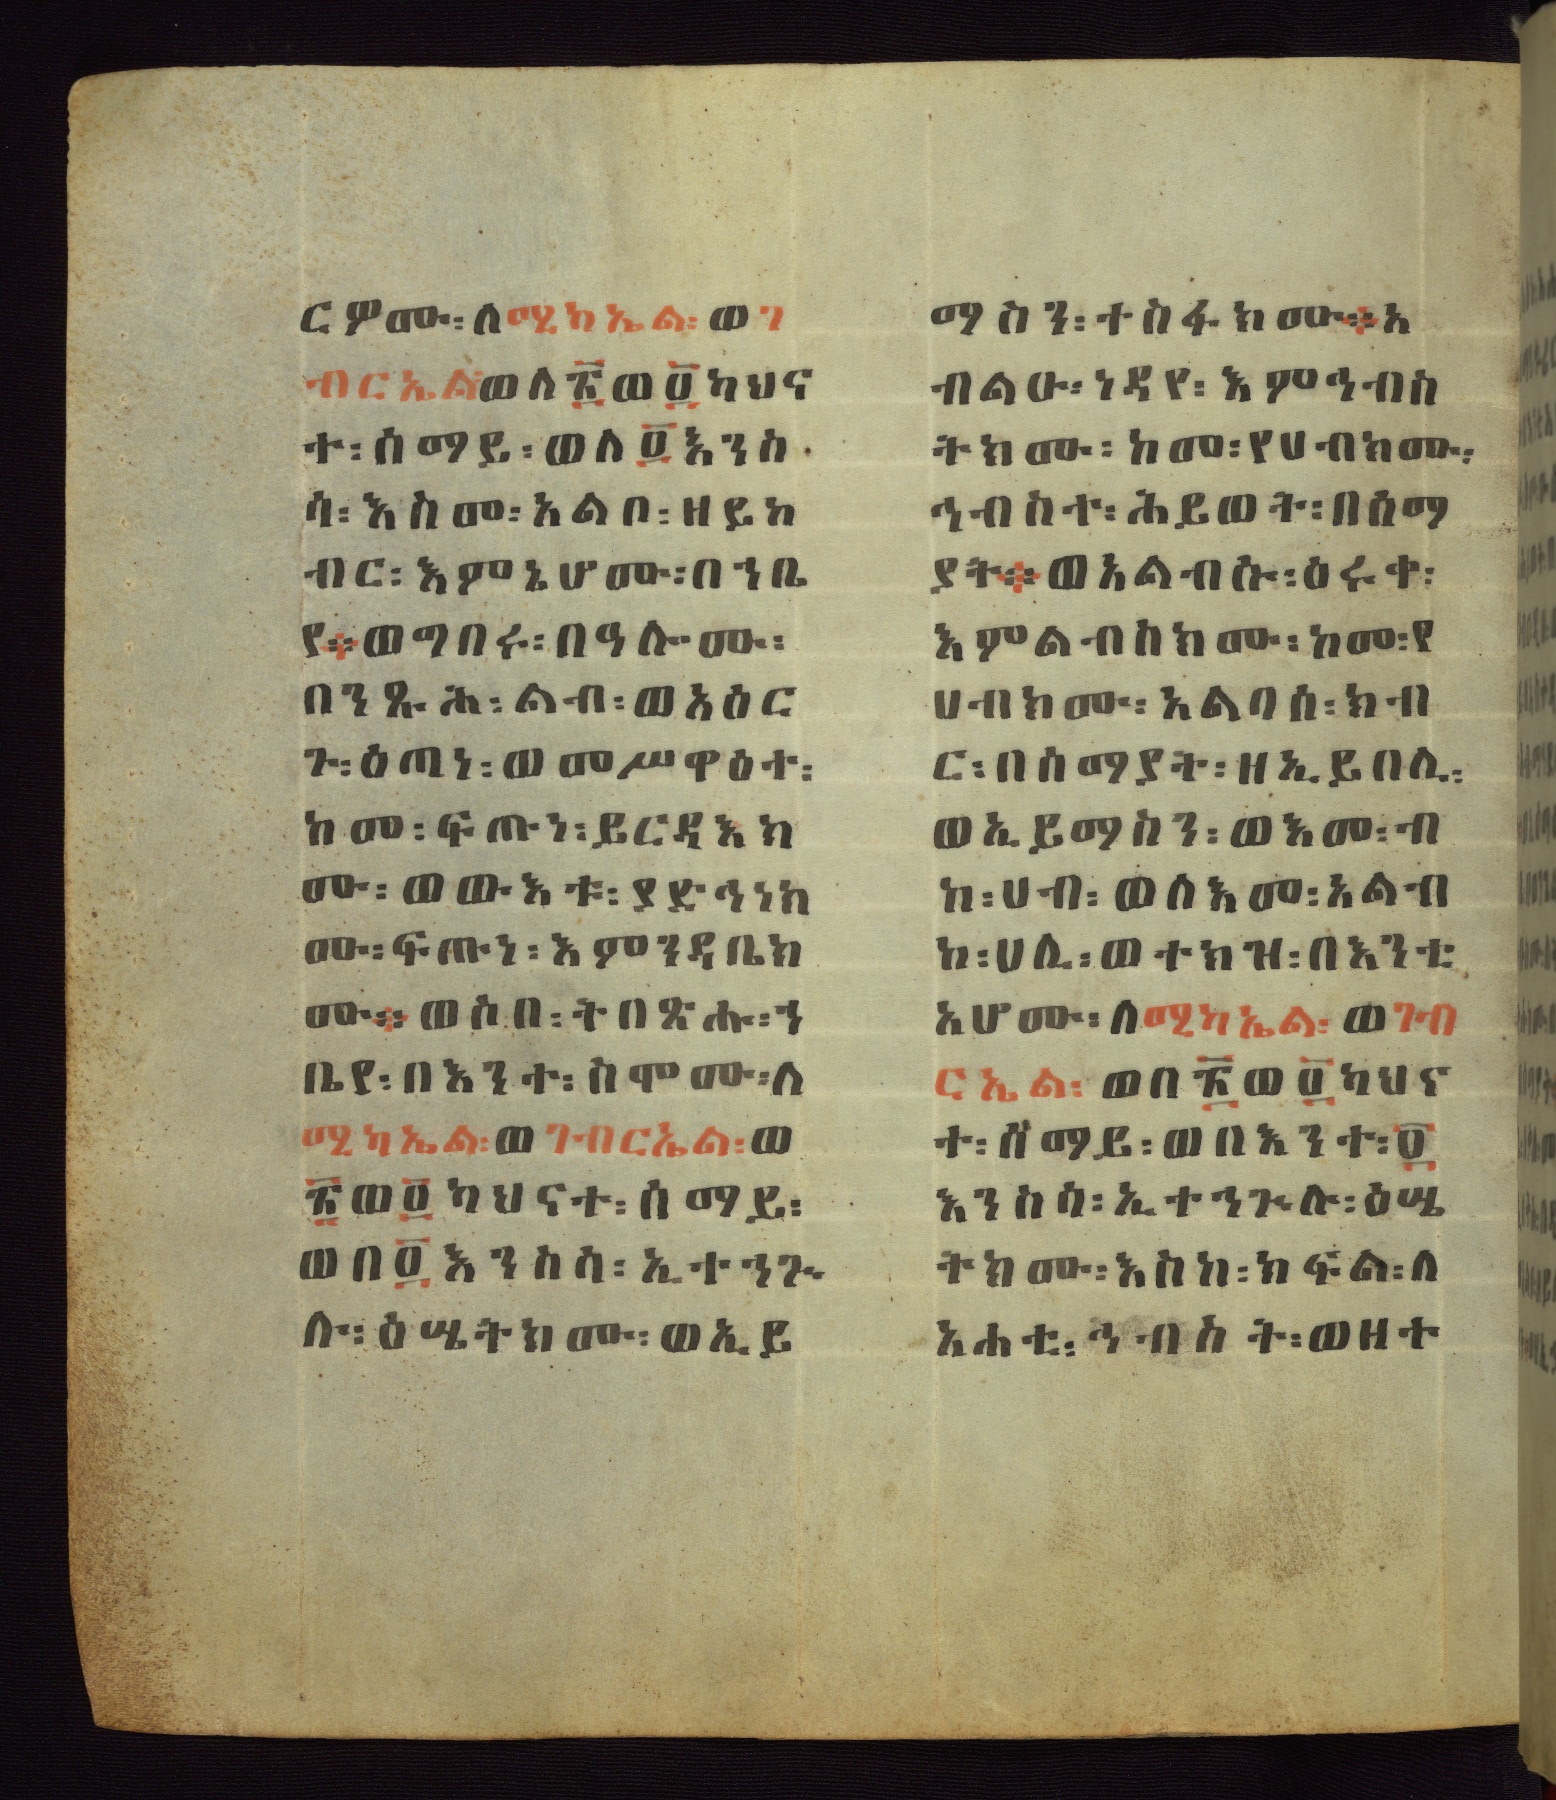 ርዎሙ፡ለሚካኤል፡ወገ
ብርኤል፡ወለ፳ወ፬ካህና
ተ፡ሰማይ፡ወለ፬እንስ
ሳ፡እስመ፡አልቦ፡ዘይከ
ብር፡እምኔሆሙ፡በኀቤ
የ፨ወግበሩ፡በዓሎሙ፡
በንጹሕ፡ልብ፡ወአዕር
ጉ፡ዕጣነ፡ወመሥዋዕተ፡
ከመ፡ፍጡነ፡ይርዳእክ
ሙ፡ወውእቱ፡ያድኅነክ
ሙ፡ፍጡነ፡እምንዳቤክ
ሙ፨ወሰበ፡ትበጽሑ፡ኀ
ቤየ፡በእንተ፡ስሞሙ፡ለ
ሚካኤል፡ወገብርኤል፡ወ
፳ወ፬ካህናተ፡ሰማይ፡
ወበ፬እንስሳ፡ኢተኀጕ
ሉ፡ዕሤትክሙ፡ወኢይ
ማስን፡ተስፋክሙ፨አ
ብልዑ፡ነዳየ፡እምኅብስ
ትክሙ፡ከመ፡የሀብክሙ፡
ኅብስተ፡ሕይወት፡በሰማ
ያት፨ወአልብሱ፡ዕሩቀ፡
እምልብስክሙ፡ከመ፡የ
ሀብክሙ፡አልባሰ፡ክብ
ር፡በሰማያት፡ዘኢይበሊ፡
ወኢይማስን፡ወእመ፡ብ
ከ፡ሀብ፡ወለእመ፡አልብ
ከ፡ሀሊ፡ወተክዝ፡በእንቲ
አሆሙ፡ለሚካኤል፡ወገብ
ርኤል፡ወበ፳ወ፬ካህና
ተ፡ሰማይ፡ወበእንተ፡፬
እንስሳ፡ኢተኀጕሉ፡ዕሤ
ትክሙ፡እስከ፡ክፍል፡ለ
አሐቲ፡ኅብስት፡ወዘተ